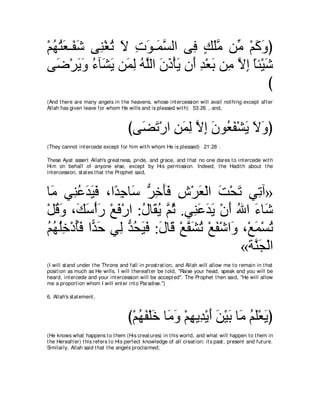 ﴿وَكَمْ مِّن مَّلَكٍ فِى السَّمَـوَتِ لاَ تُغْنِى شَفَـعَتُهُمْ
شَيْئاً إِلاَّ مِن بَعْدِ أَن يَأْذَنَ اللَّهُ لِمَن يَشَآءُ وَيَرْضَى
﴾
(And there are many angels in the heavens, whose intercession will avail nothing except after
Allah has given leave for whom He wills and is pleased with) 53:26 , and,
﴿وَلاَ يَشْفَعُونَ إِلاَّ لِمَنِ ارْتَضَى﴾
(They cannot intercede except for him with whom He is pleased) 21:28 .
These Ayat assert Allah's greatness, pride, and grace, and that no one dares to intercede with
Him on behalf of anyone else, except by His permission. Indeed, the Hadith about the
intercession, states that the Prophet said,
«آتِي تَحْتَ الْعَرْشِ فَأَخِرُّ سَاجِدًا، فَيَدَعُنِي مَا
شَاءَ اللهُ أَنْ يَدَعَنِي. ثُمَّ يُقَالُ: ارْفَعْ رَأْسَكَ، وَقُلْ
تُسْمَعْ، وَاشْفَعْ تُشَفَّعْ قَالَ: فَيَحُدُّ لِي حَدًّا فَأُدْخِلُهُمُ
الْجَنَّة»
(I will stand under the Throne and fall in prostration, and Allah will allow me to remain in that
position as much as He wills. I will thereafter be told, "Raise your head, speak and you will be
heard, intercede and your intercession will be accepted". The Prophet then said, "He will allow
me a proportion whom I will enter into Paradise.")
6. Allah's statement,
﴿يَعْلَمُ مَا بَيْنَ أَيْدِيهِمْ وَمَا خَلْفَهُمْ﴾
(He knows what happens to them (His creatures) in this world, and what will happen to them in
the Hereafter) this refers to His perfect knowledge of all creation; its past, present and future.
Similarly, Allah said that the angels proclaimed;